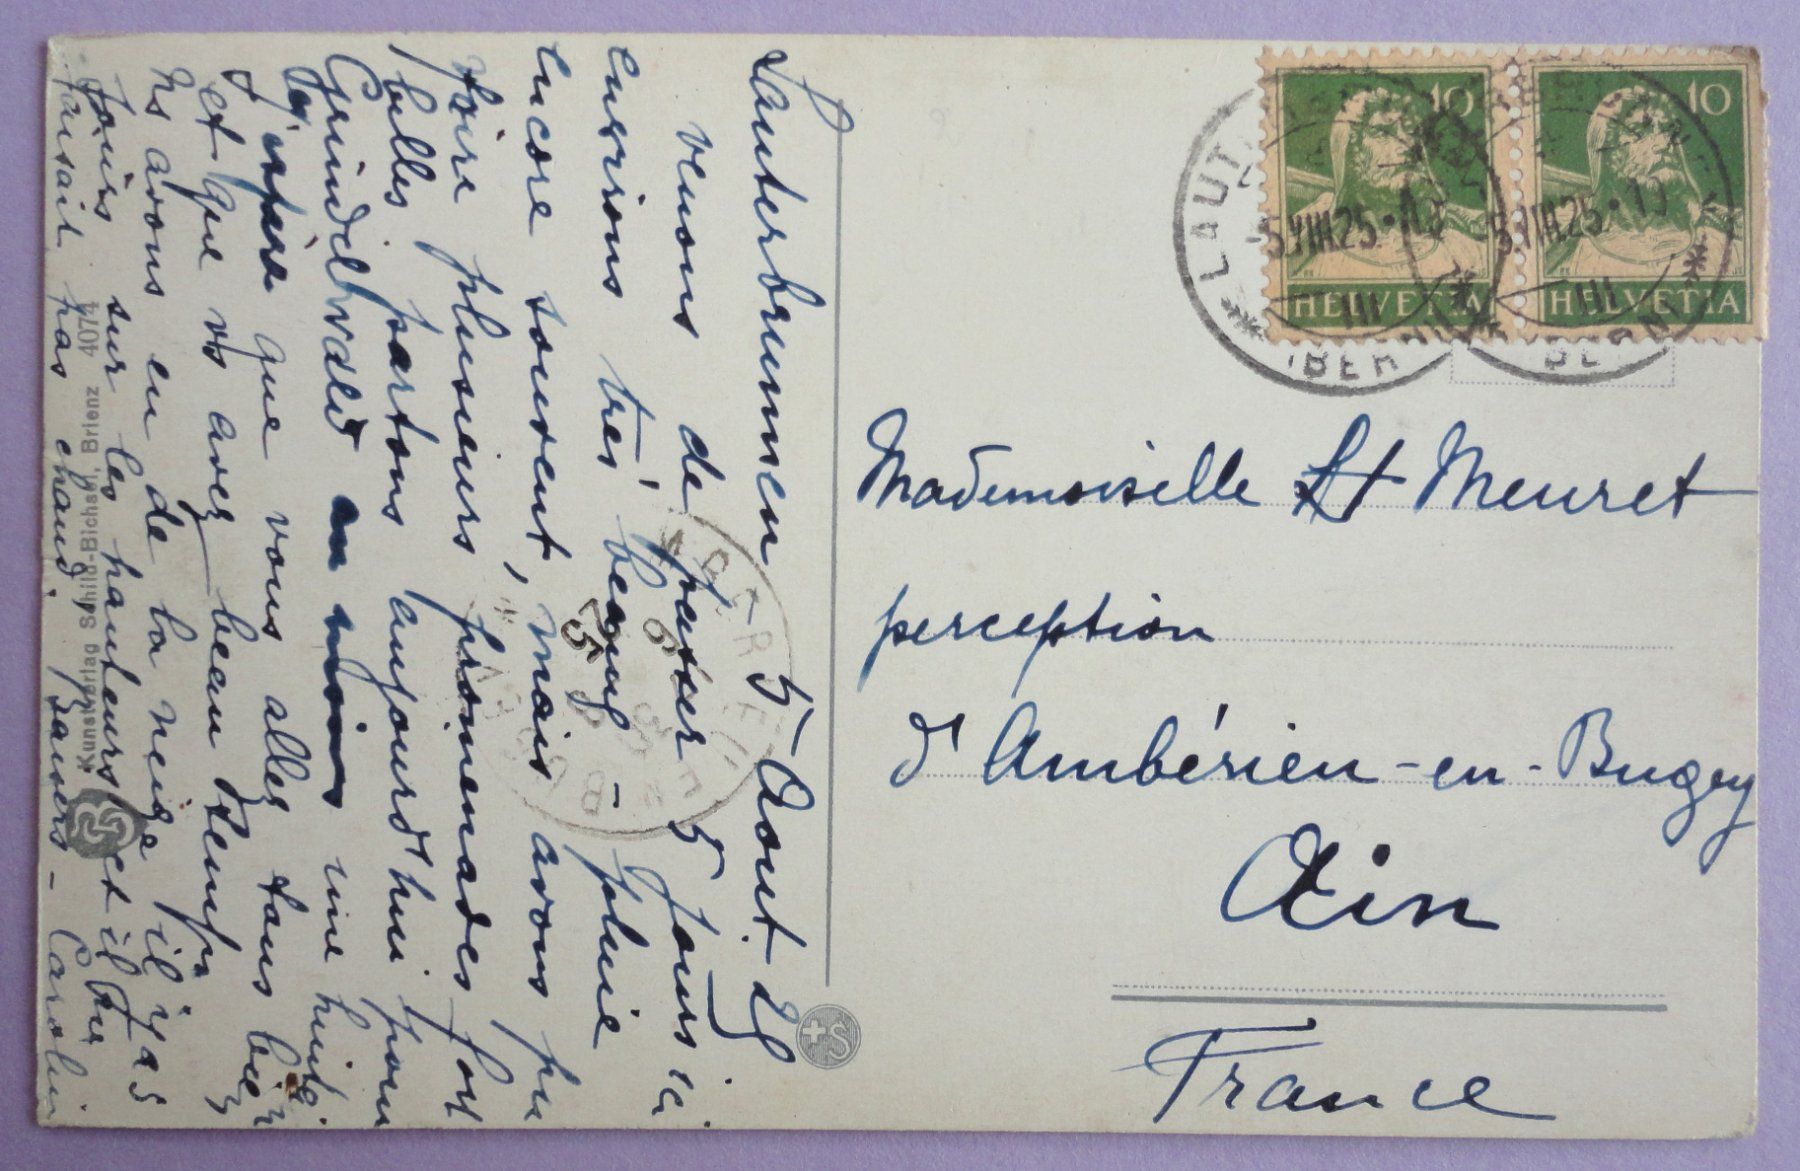 Lauterbrunnen 5 Aout 25
venons de passer 5 jours ici
environs très beaux – pluie
encore souvent, mais avons pu
faire plusieurs promenades fort
belles partons aujourd'hui pour
Grindelwald une huite
que vous allez tous bien
et que vs avez beau temps
Ns avons eu de la neige il y a 5
jours sur les hauteurs et il ne
faisait pas chaud. Baisers – Carolin
Kunstverlag Schild-Bichsel, Brienz 4074
10
10
HELVETIA
HELVETIA
LAUT
5.VIII.25
5.VIII.25
III
III
(BERN)
(BERN)
Mademoiselle Meuret
perception
d'Ambérieu-en-Bugey
Ain
France